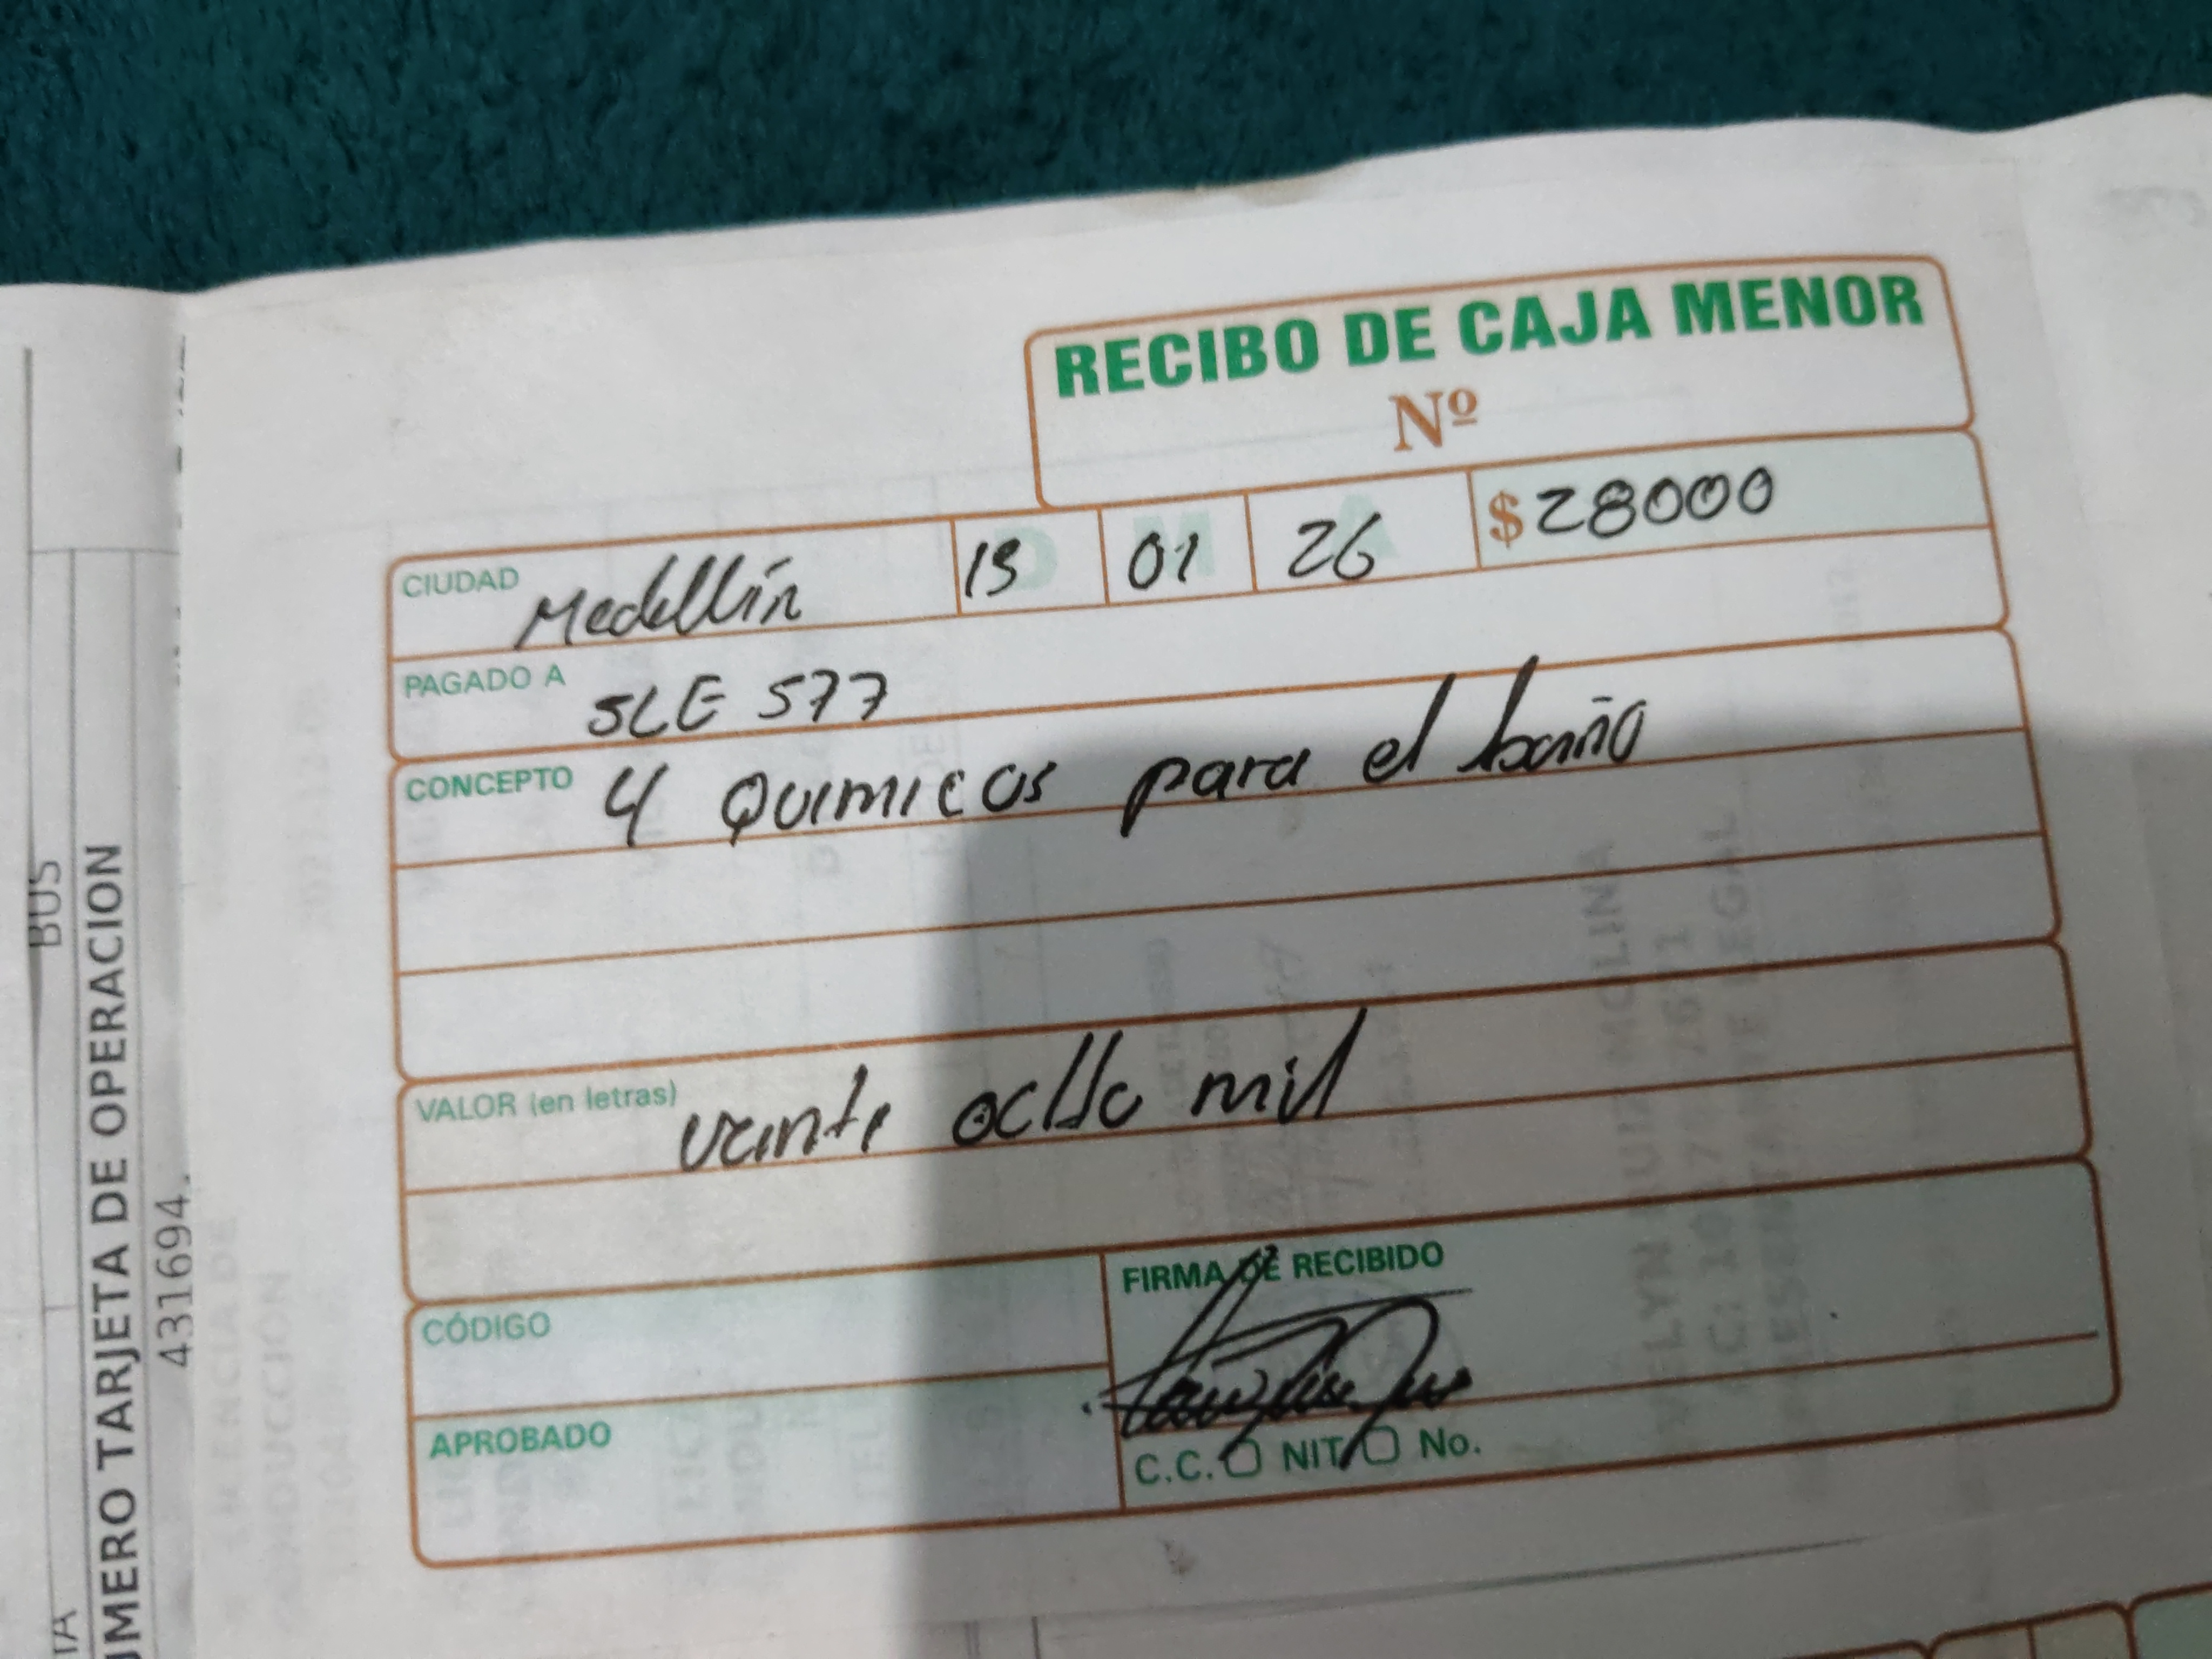 RECIBO DE CAJA MENOR
Nº
CIUDAD Medellín 13 01 26 $ 28000
PAGADO A SLE 577
CONCEPTO 4 Quimicos para el baño
VALOR (en letras) veinte ocho mil
CÓDIGO
FIRMA DE RECIBIDO
APROBADO
C.C. NIT No.
BUS
NUMERO TARJETA DE OPERACION
431694